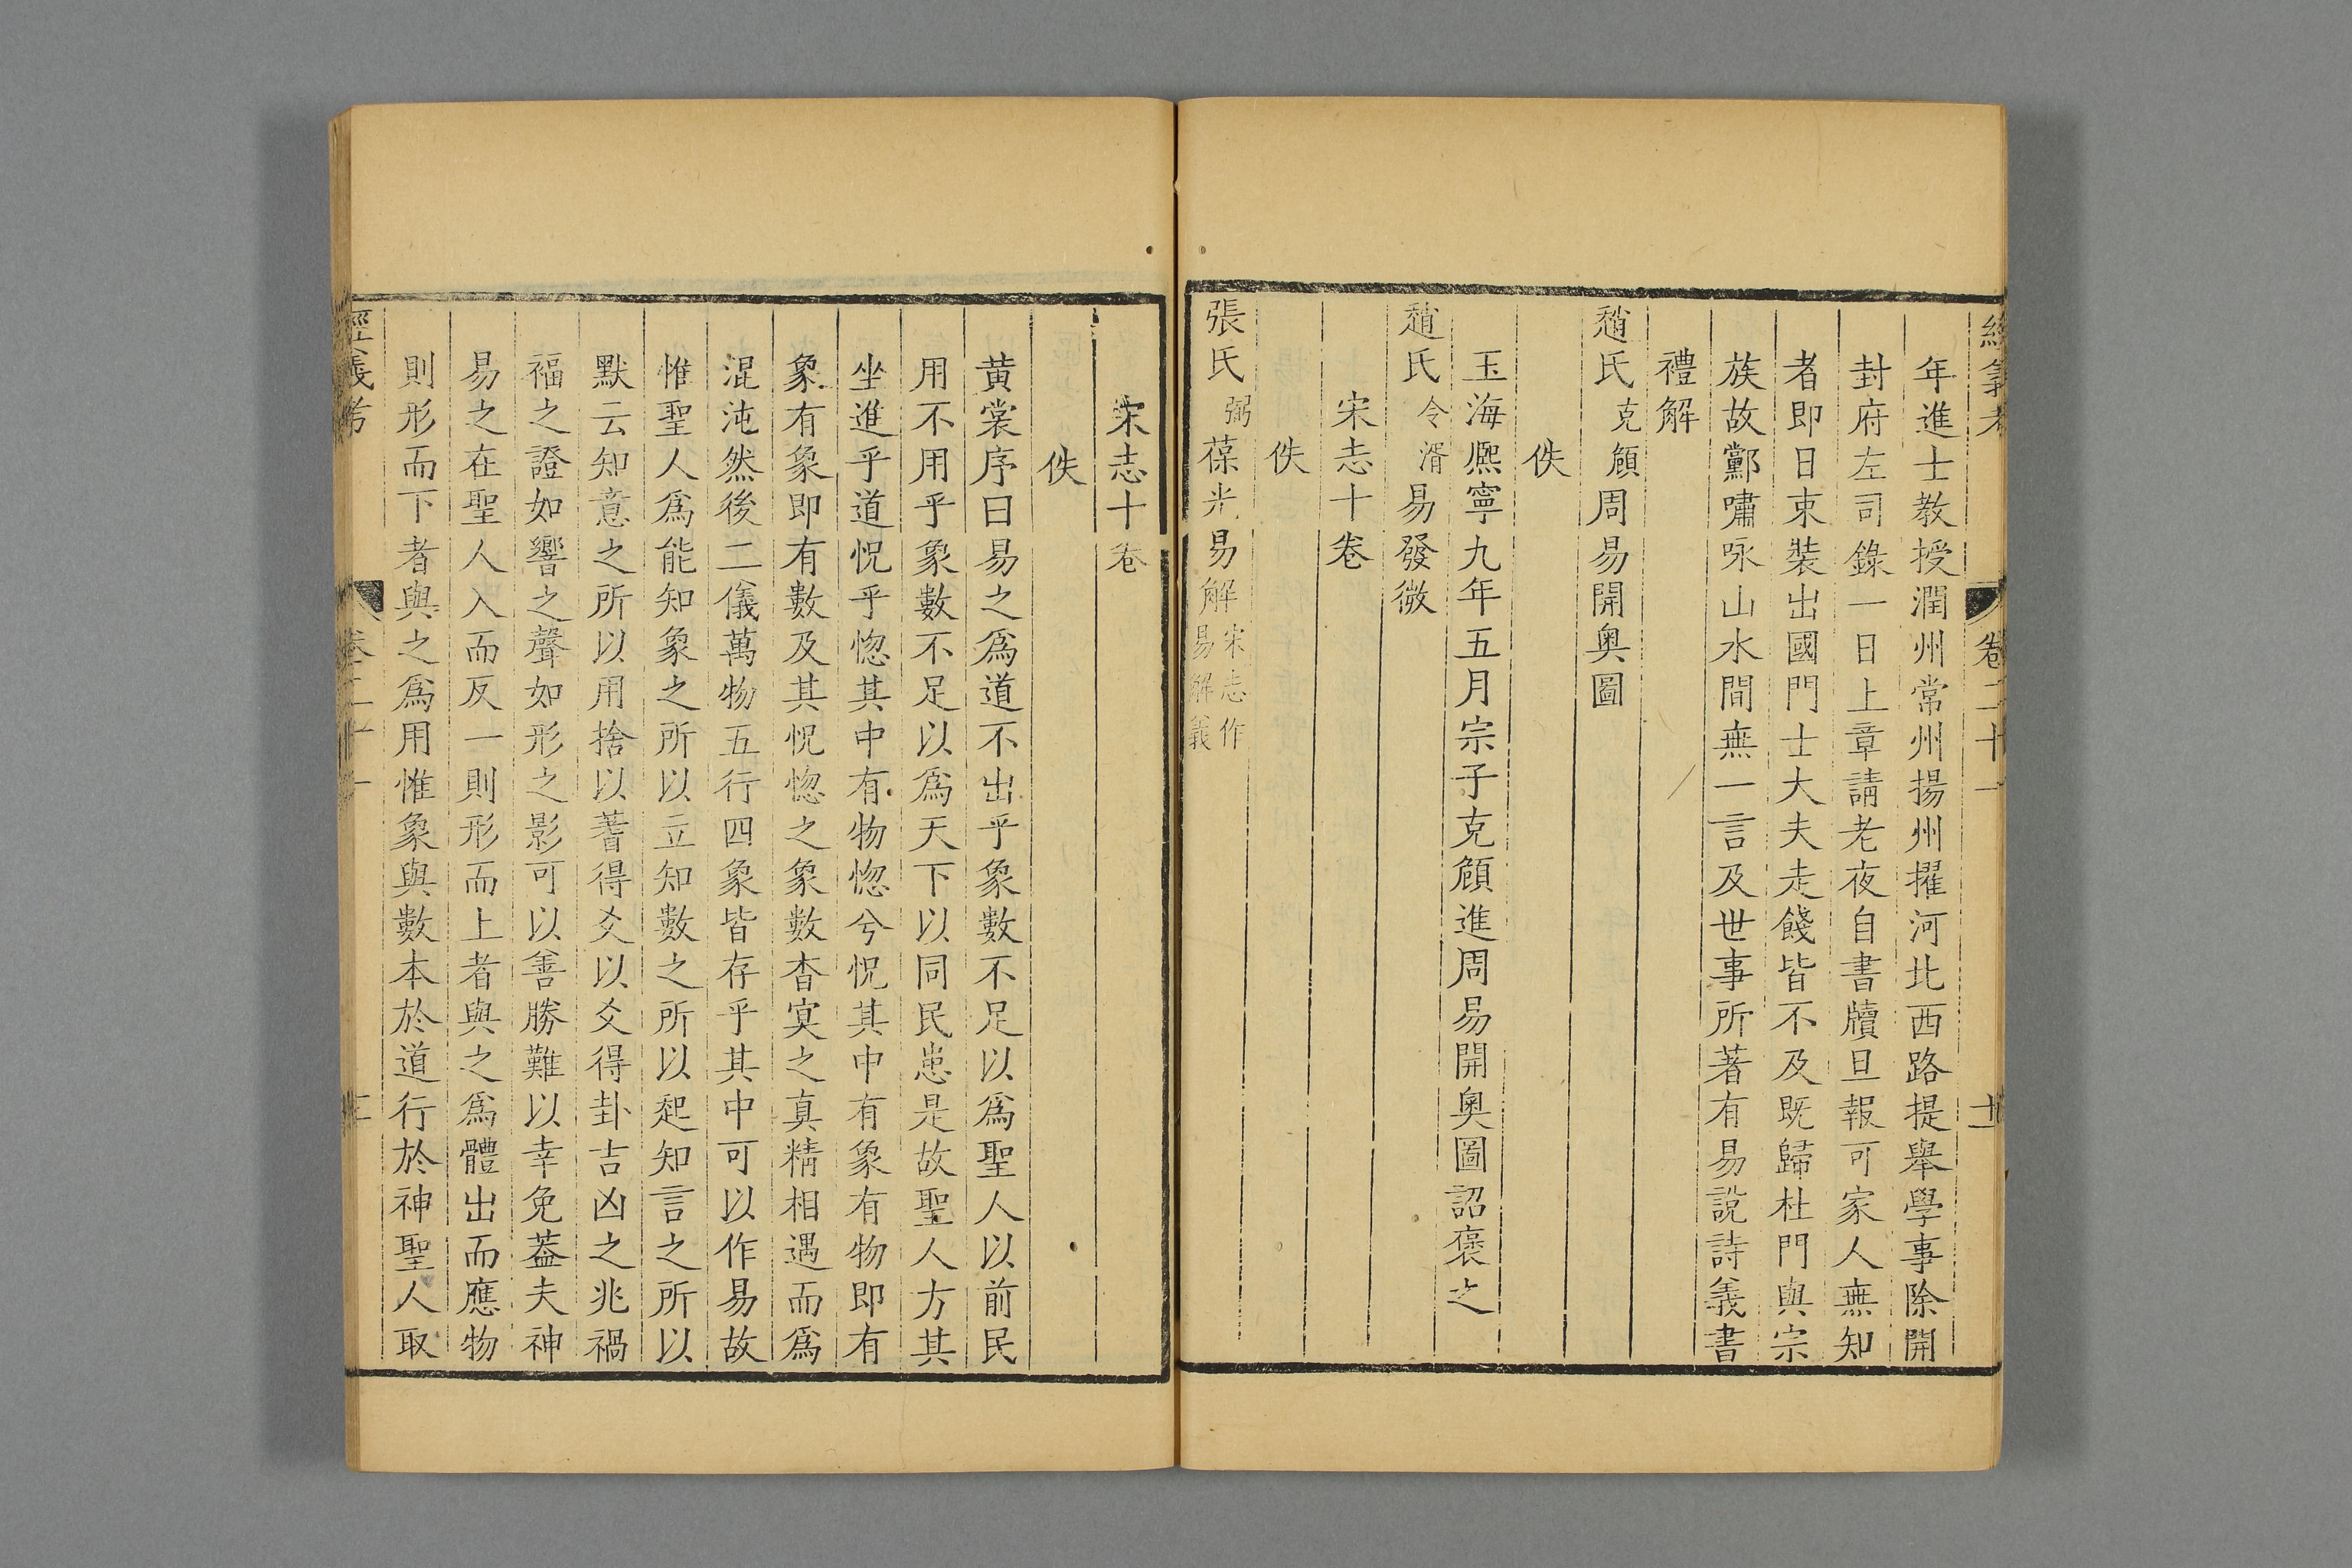 經義考 卷二十一 十一
年進士教授潤州常州揚州擢河北西路提舉學事除開
封府左司錄一日上章請老夜自書牘旦報可家人無知
者即日束裝出國門士大夫走餞皆不及既歸杜門與宗
族故鄰嘯咏山水間無一言及世事所著有易說詩義書
禮解
趙氏克頎周易開奧圖
佚
玉海熙寧九年五月宗子克頎進周易開奧圖詔褒之
趙氏令湑易發微
宋志十卷
佚
張氏弼葆光易解宋志作易解義
宋志十卷
佚
黃裳序曰易之爲道不出乎象數不足以爲聖人以前民
用不用乎象數不足以爲天下以同民患是故聖人方其
坐進乎道怳乎惚其中有物惚兮怳其中有象有物即有
象有象即有數及其怳惚之象數杳冥之真精相遇而爲
混沌然後二儀萬物五行四象皆存乎其中可以作易故
惟聖人爲能知象之所以立知數之所以起知言之所以
默云知意之所以用捨以蓍得爻以爻得卦吉凶之兆禍
福之證如響之聲如形之影可以善勝難以幸免葢夫神
易之在聖人入而反一則形而上者與之爲體出而應物
則形而下者與之爲用惟象與數本於道行於神聖人取
經義考 卷二十一